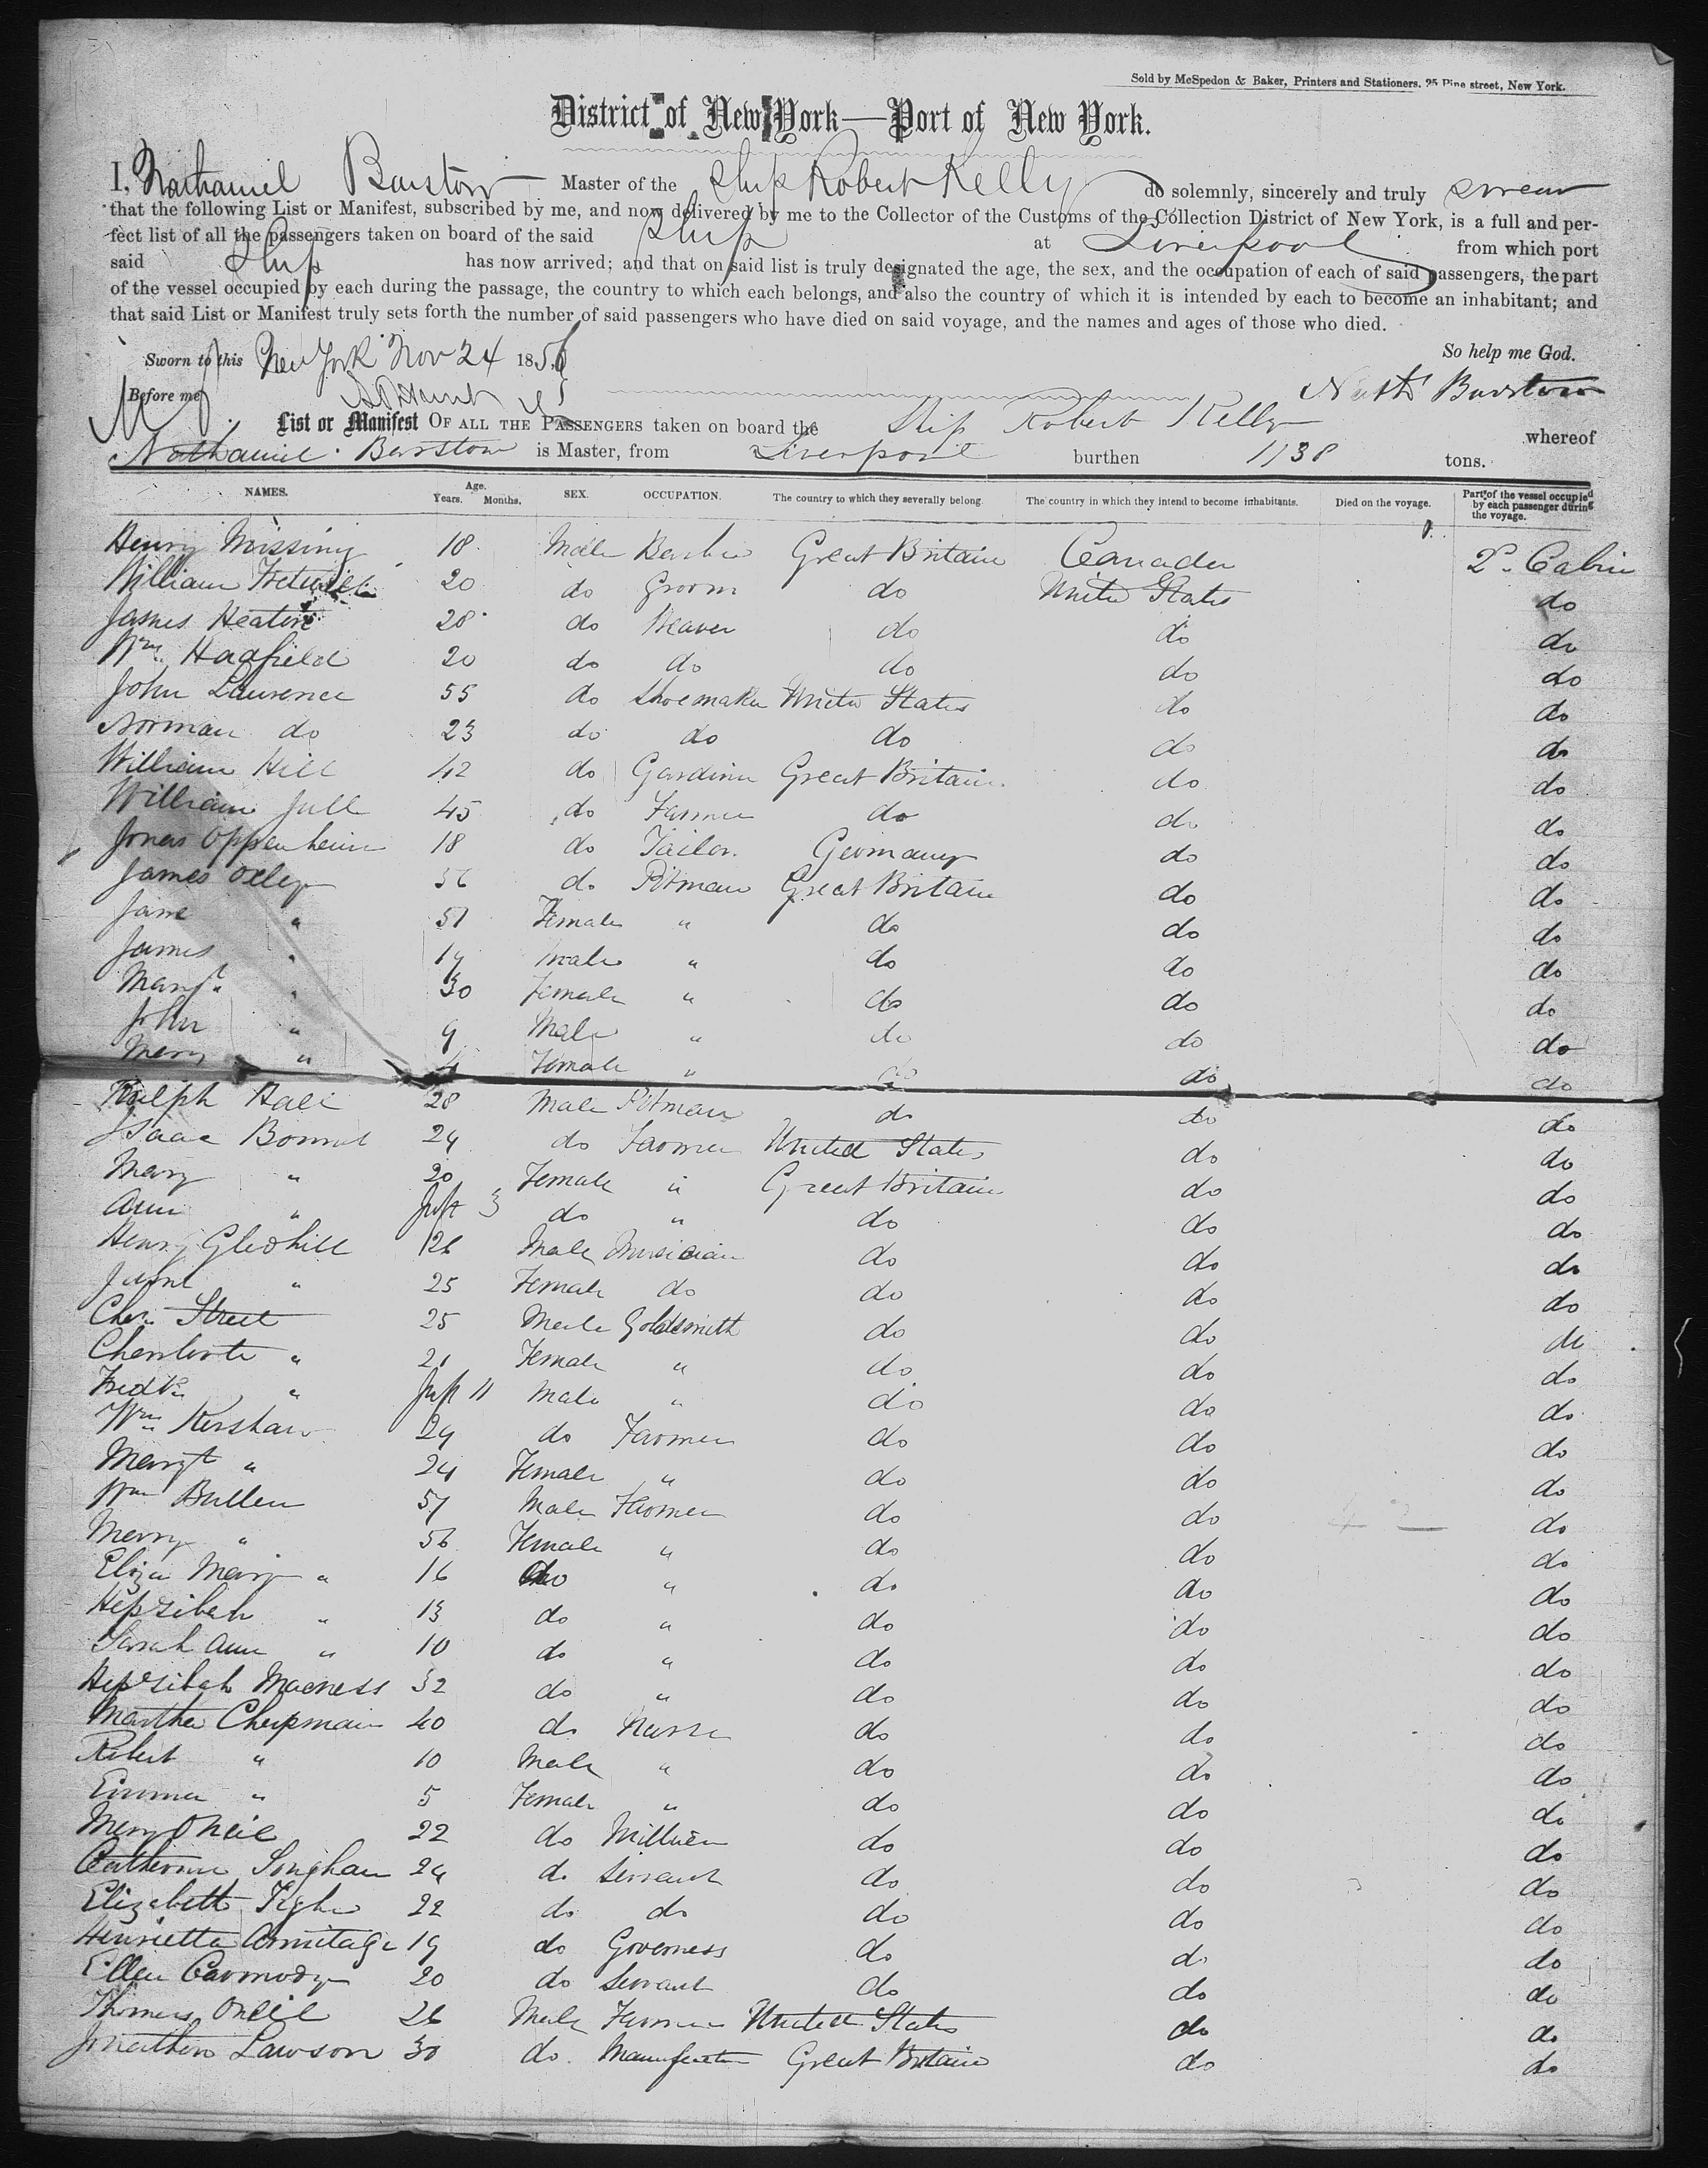 Sold by McSpedon & Baker, Printers and Stationers, 25 Pine street, New York.
District of New York—Port of New York.
I, Nathaniel Barstow Master of the Ship Robert Kelly do solemnly, sincerely and truly swear
that the following List or Manifest, subscribed by me, and now delivered by me to the Collector of the Customs of the Collection District of New York, is a full and per-
fect list of all the passengers taken on board of the said Ship at Liverpool from which port
said Ship has now arrived; and that on said list is truly designated the age, the sex, and the occupation of each of said passengers, the part
of the vessel occupied by each during the passage, the country to which each belongs, and also the country of which it is intended by each to become an inhabitant; and
that said List or Manifest truly sets forth the number of said passengers who have died on said voyage, and the names and ages of those who died.
So help me God.
Sworn to this New York Nov 24 1856
Before me Nathl Barstow
List or Manifest OF ALL THE PASSENGERS taken on board the Ship Robert Kelly whereof
Nathaniel Barstow is Master, from Liverpool burthen 1138 tons.
NAMES. Age. Years. Months. SEX. OCCUPATION. The country to which they severally belong. The country in which they intend to become inhabitants. Died on the voyage. Part of the vessel occupied by each passenger during the voyage.
Henry 18 Male Great Britain Canada 2d Cabin
William 20 do Groom do United States do
James Heaton 28 do Weaver do do do
Wm Hadfield 20 do do do do do
John Lawrence 55 do Shoemaker United States do do
Norman do 23 do do do do do
William Hill 42 do Gardiner Great Britain do do
William Jull 45 do Farmer do do do
Jonas Oppenheim 18 do Tailor Germany do do
James Oxley 56 do Pitman Great Britain do do
Jane " 51 Female " do do do
James " 19 Male " do do do
Margt " 30 Female " do do do
John " 9 Male " do do do
Mary " 4 Female " do do do
Ralph Hall 28 Male Pitman do do do
Isaac 24 do Farmer United States do do
Mary " 20 Female " Great Britain do do
Ann " Inft 3 do " do do do
Henry Gledhill 26 Male Musician do do do
Jane " 25 Female do do do do
Chas Street 25 Male Goldsmith do do do
Charlotte " 21 Female " do do do
Fredk " Inft 11 Male " do do do
Wm Kershaw 29 do Farmer do do do
Margt " 24 Female " do do do
Wm Bullen 57 Male Farmer do do do
Mary " 56 Female " do do do
Eliza Mary " 16 do " do do do
Hepzibah " 13 do " do do do
Sarah Ann " 10 do " do do do
Hepzibah Macness 32 do " do do do
Martha Chapman 40 do Nurse do do do
Robert " 10 Male " do do do
Emma " 5 Female " do do do
Mary ONeil 22 do Milliner do do do
Catherine Singhan 24 do Servant do do do
Elizabeth Tighe 22 do do do do do
Henrietta Armitage 19 do Governess do do do
Ellen Carmody 20 do Servant do do do
Thomas ONeil 26 Male Farmer United States do do
Jonathan Lawson 30 do Great Britain do do